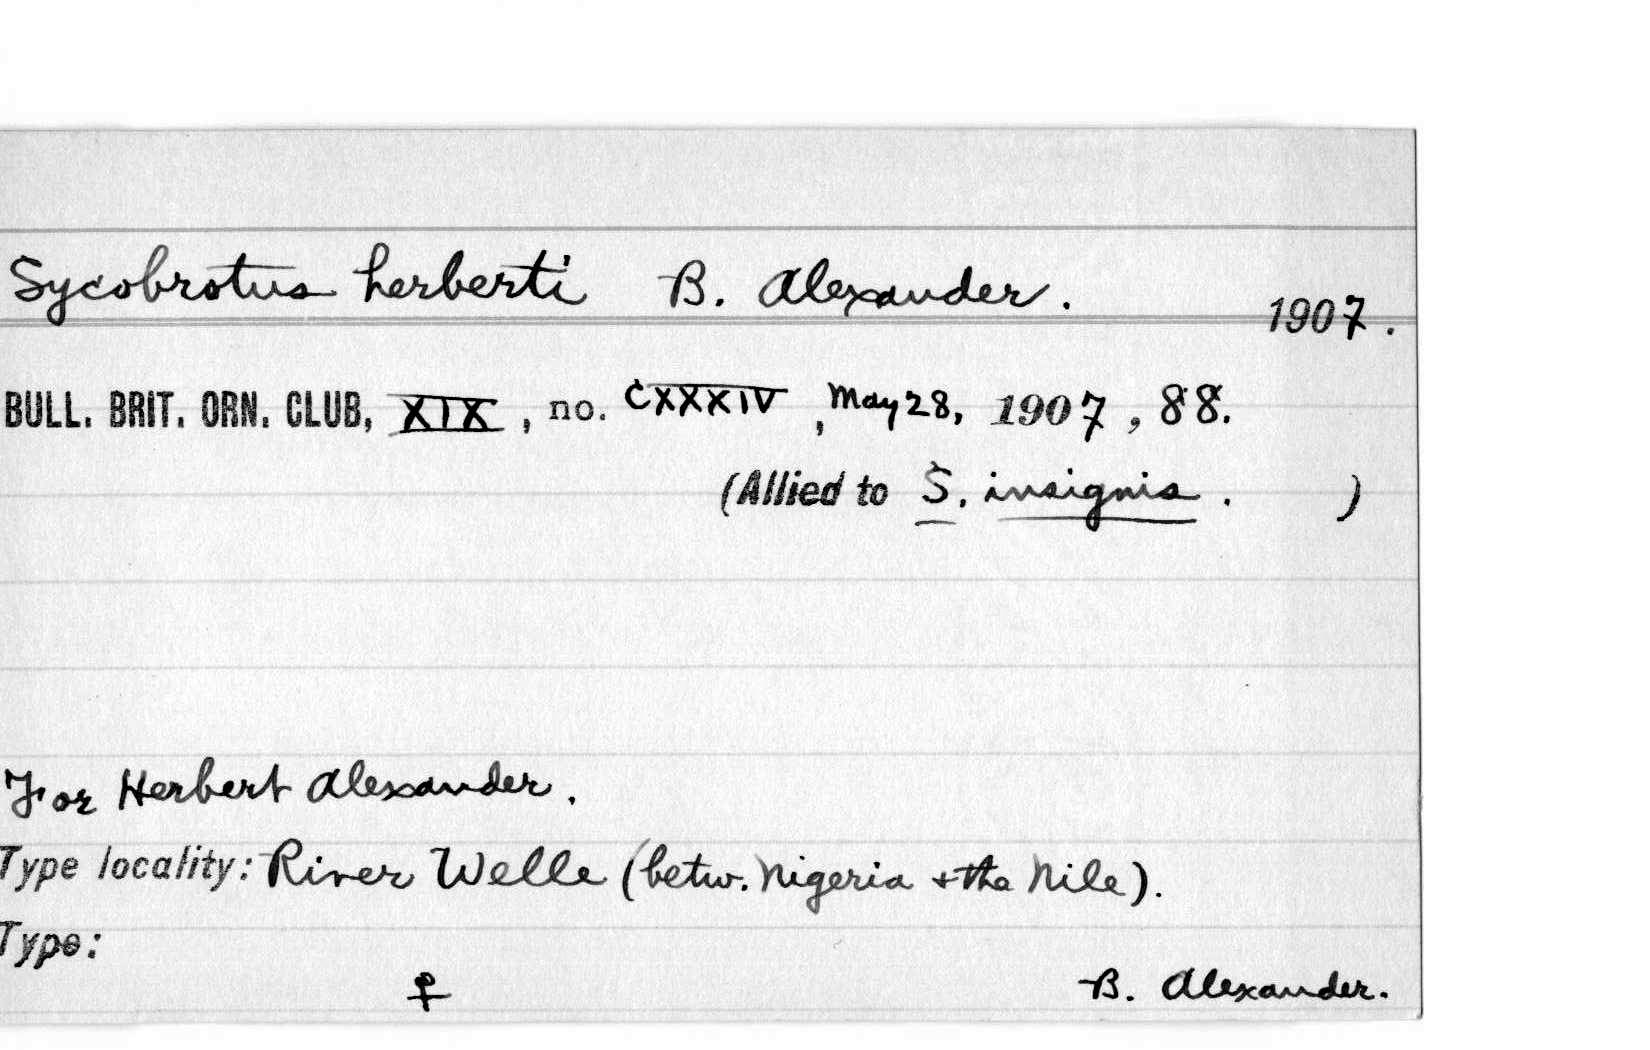 Sycobrotus herberti B. Alexander.
1907.
BULL. BRIT. ORN. CLUB, XIX, no. CXXXIV, May 28, 1907, 88.
(Allied to S. insignis. )
For Herbert Alexander.
Type locality: River Welle (betw. Nigeria + the Nile).
Type:
♀ B. Alexander.